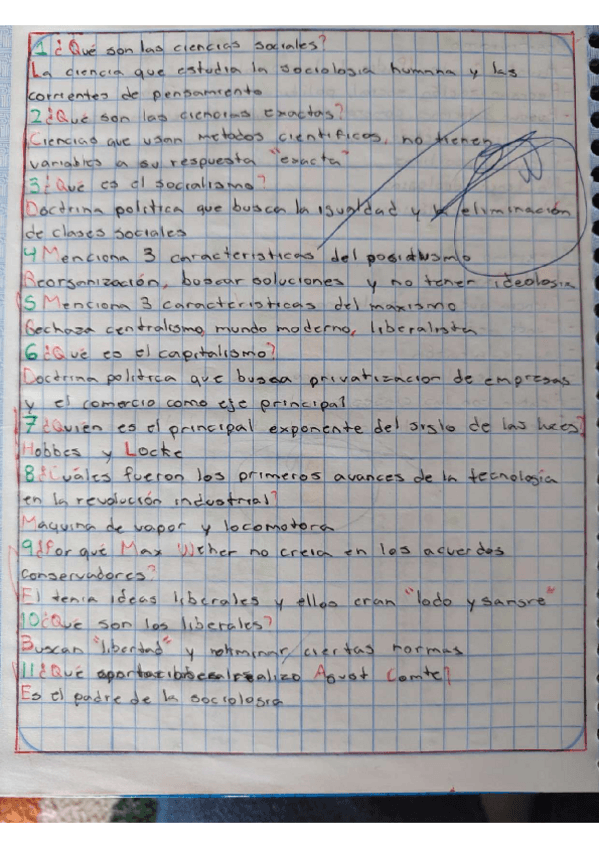 1 ¿Qué son las ciencias sociales?
La ciencia que estudia la sociologia humana y las
corrientes de pensamiento
2 ¿Qué son las ciencias exactas?
Ciencias que usan metodos cientificos, no tienen
variables a su respuesta "exacta"
3 ¿Qué es el socialismo?
Doctrina politica que busca la igualdad y eliminación
de clases sociales
4 Menciona 3 caracteristicas del
Reorganización, buscar soluciones y no tener ideologia
5 Menciona 3 caracteristicas del maxismo
Rechaza centralismo, mundo moderno, liberalista
6 ¿Qué es el capitalismo?
Doctrina politica que busca privatizacion de empresas
y el comercio como eje principal
7 ¿Quién es el principal exponente del siglo de las luces?
Hobbes y Locke
8 ¿Cuáles fueron los primeros avances de la tecnología
en la revolución industrial?
Maquina de vapor y locomotora
9 ¿Por qué Max Weber no creia en los acuerdos
conservadores?
El tenia ideas liberales y ellos eran "lodo y sangre"
10 ¿Que son los liberales?
Buscan "libertad" y ciertas normas
11 ¿Qué realizo Agust Comte?
Es el padre de la sociologia